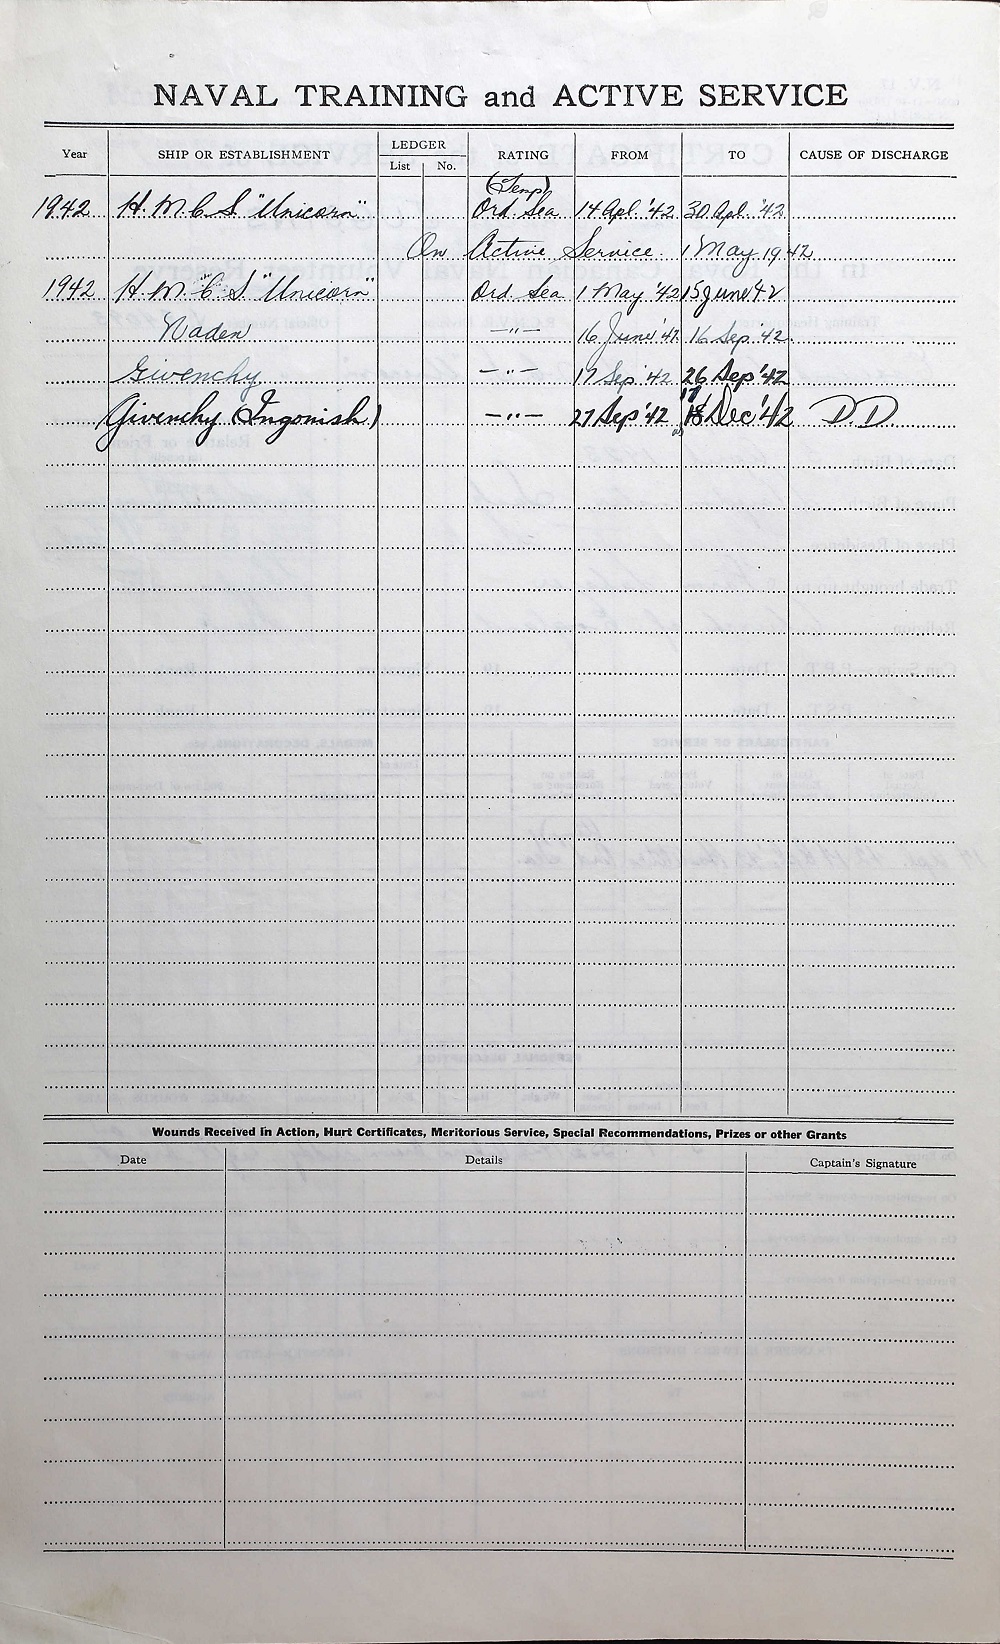 NAVAL TRAINING and ACTIVE SERVICE
Year SHIP OR ESTABLISHMENT LEDGER List No. RATING FROM TO CAUSE OF DISCHARGE
(Temp)
1942 H.M.C.S. "Unicorn" Ord. Sea 14 Apl. '42 30 Apl. '42
On Active Service. 1 May 1942
1942 H.M.C.S. "Unicorn" Ord Sea 1 May '42 15 June 42
Naden —"— 16 June '42 16 Sep. '42.
Givenchy —"— 17 Sep '42 26 Sep '42
Givenchy (Ingonish) —"— 27 Sep '42 17 Dec '42 D.D.
Wounds Received in Action, Hurt Certificates, Meritorious Service, Special Recommendations, Prizes or other Grants
Date Details Captain's Signature